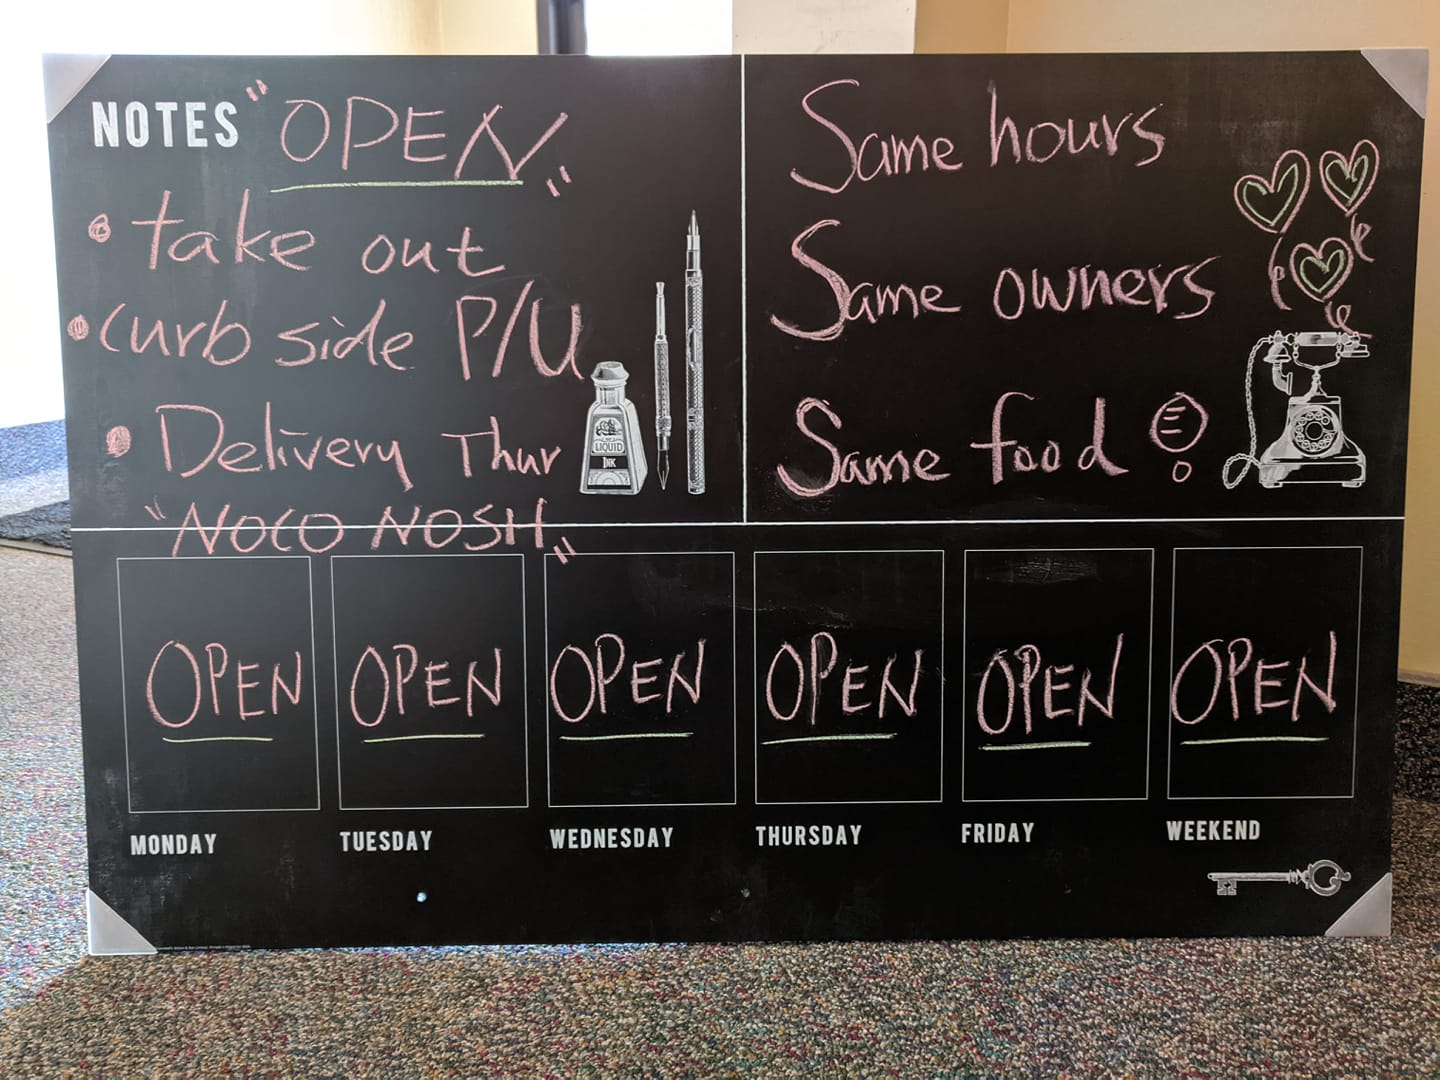 NOTES "OPEN"
• take out
• curb side P/U
• Delivery Thur
"NOCO NOSH"
Same hours
Same owners
Same food !
LIQUID
INK
OPEN OPEN OPEN OPEN OPEN OPEN
MONDAY TUESDAY WEDNESDAY THURSDAY FRIDAY WEEKEND